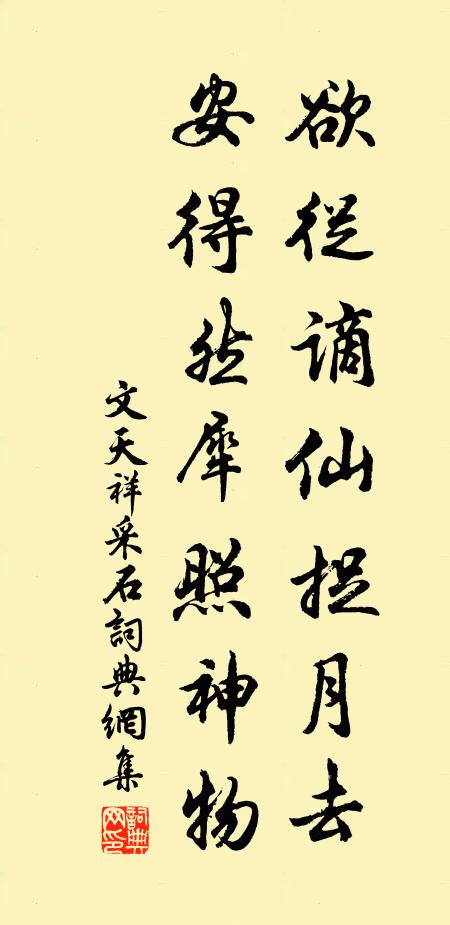 欲從謫仙捉月去
安得然犀照神物
文天祥采石詞典網集
詞典網印